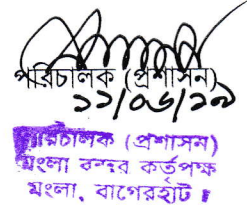 পরিচালক (প্রশাসন)
১১/০৬/১৯
পরিচালক (প্রশাসন)
মংলা বন্দর কর্তৃপক্ষ
মংলা, বাগেরহাট।